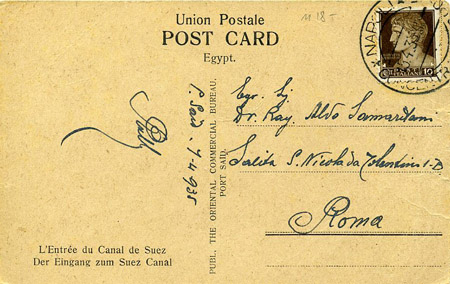 Union Postale
POST CARD
Egypt.
11 18
NAPOLI
ITALIANE 10
Egr. Sig
Dr. Rag. Aldo Sammartani
Salita S. Nicola da Tolentino 1-D
Roma
P. Said. 7-4-935
PUBL. THE ORIENTAL COMMERCIAL BUREAU.
PORT SAID.
L'Entrée du Canal de Suez
Der Eingang zum Suez Canal